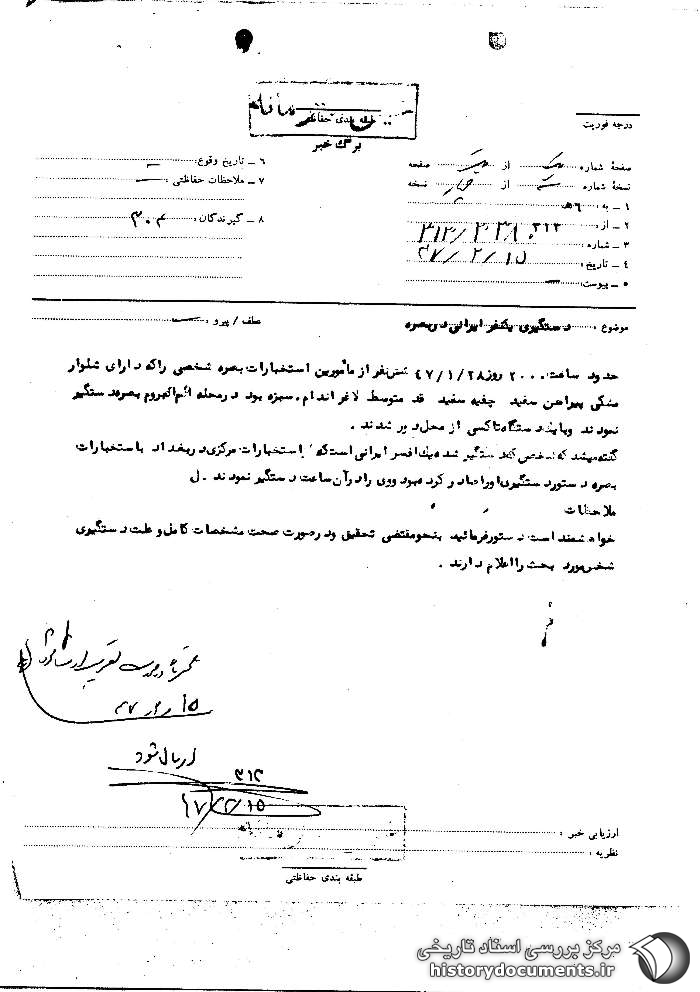 طبقه بندی حفاظتی
درجه فوریت
برگ خبر
صفحهٔ شماره یک از یک صفحه
نسخهٔ شماره از چهار نسخه
۱ ـ به : ۶هـ
۲ ـ از : ۳۱۲
۳ ـ شماره :
۴ ـ تاریخ : ۴۷/۲/۱۵
۵ ـ پیوست : ـ
۶ ـ تاریخ وقوع : ـ
۷ ـ ملاحظات حفاظتی : ـ
۸ ـ گیرندگان : ۳۰۴
موضوع : دستگیری یکنفر ایرانی در بصره
عطف / پیرو : ـ
حدود ساعت ۲۰۰۰ روز ۴۷/۱/۲۸ شش نفر از مأمورین استخبارات بصره شخصی را که دارای شلوار
مشکی پیراهن سفید چفیه سفید قد متوسط لاغر اندام . سبزه بود در محله بصره دستگیر
نمودند و با یکدستگاه تاکسی از محل دور شدند .
گفته میشد که شخص دستگیر شده یک افسر ایرانی است که استخبارات مرکزی در بغداد با استخبارات
بصره دستور دستگیری او را صادر کرده بود و وی را در آن ساعت دستگیر نمودند . ل
ملاحظات
خواهشمند است دستور فرمائید بنحو مقتضی تحقیق و در صورت صحت مشخصات کامل و علت دستگیری
شخص مورد بحث را اعلام دارند .
۴۷/۲/۱۵
ارسال شود
۳۱۲
۴۷/۲/۱۵
ارزیابی خبر :
نظریه :
طبقه بندی حفاظتی
مرکز بررسی اسناد تاریخی
historydocuments.ir